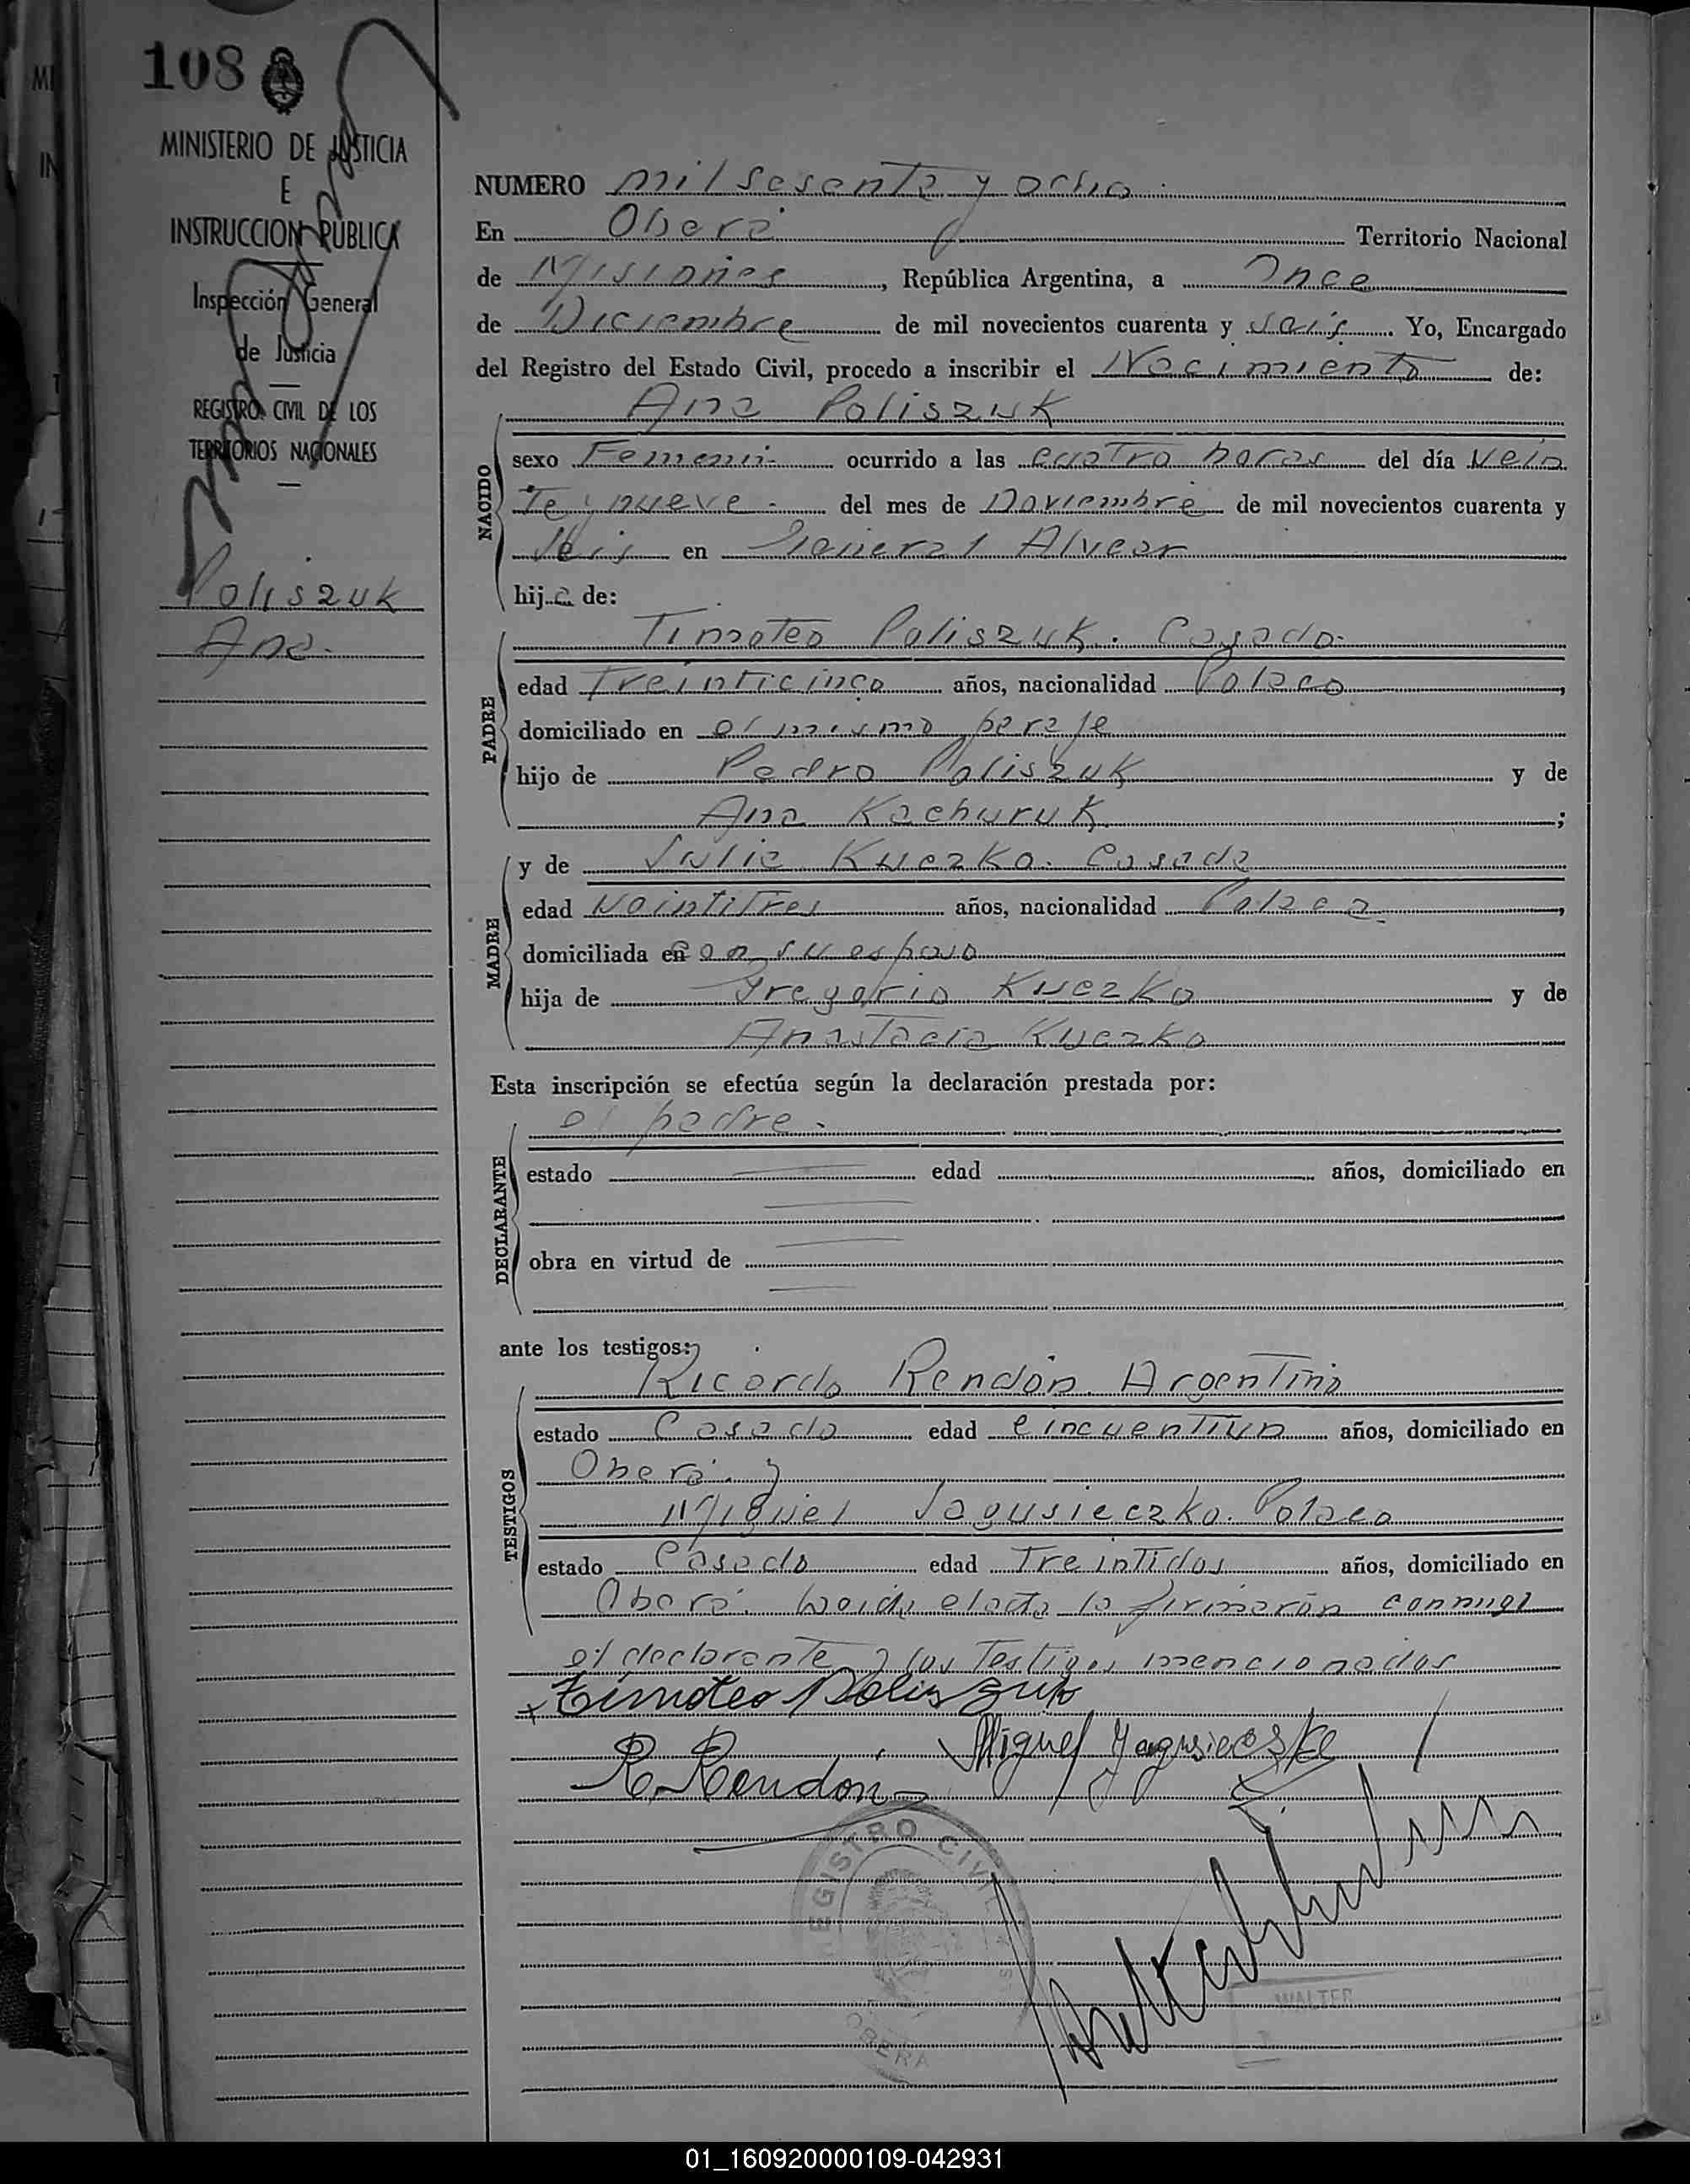 108
MINISTERIO DE JUSTICIA
E
INSTRUCCION PÚBLICA
Inspección General
de Justicia
REGISTRO CIVIL DE LOS
TERRITORIOS NACIONALES
Poliszuk
Ana.
NUMERO mil sesenta y ocho.
En Oberá Territorio Nacional
de Misiones, República Argentina, a Once
de Diciembre de mil novecientos cuarenta y seis. Yo, Encargado
del Registro del Estado Civil, procedo a inscribir el Nacimiento de:
Ana Poliszuk
NACIDO
sexo Femeni- ocurrido a las cuatro horas del día vein
te y nueve- del mes de Noviembre de mil novecientos cuarenta y
seis en General Alvear
hija de:
PADRE
Timoteo Poliszuk. Casado.
edad Treinticinco años, nacionalidad Polaco,
domiciliado en el mismo paraje
hijo de Pedro Poliszuk y de
Ana Kachuruk;
MADRE
y de Julia Kuczko. Casada
edad Veintitres años, nacionalidad Polaca,
domiciliada en con su esposo
hija de Gregorio Kuczko y de
Anastacia Kuczko
Esta inscripción se efectúa según la declaración prestada por:
el padre.
DECLARANTE
estado edad años, domiciliado en
obra en virtud de
ante los testigos:
TESTIGOS
Ricardo Rendón. Argentino
estado Casado edad cincuentiun años, domiciliado en
Oberá y
Miguel Jagusieczko. Polaco
estado Casado edad Treintidos años, domiciliado en
Oberá. Leida el acta la firmarón conmigo
el declarante y los Testigos mencionados
x Timoteo Poliszuk
Miguel Jagusieczko
R. Rendón
REGISTRO CIVIL
OBERA
WALTER
01_160920000109-042931